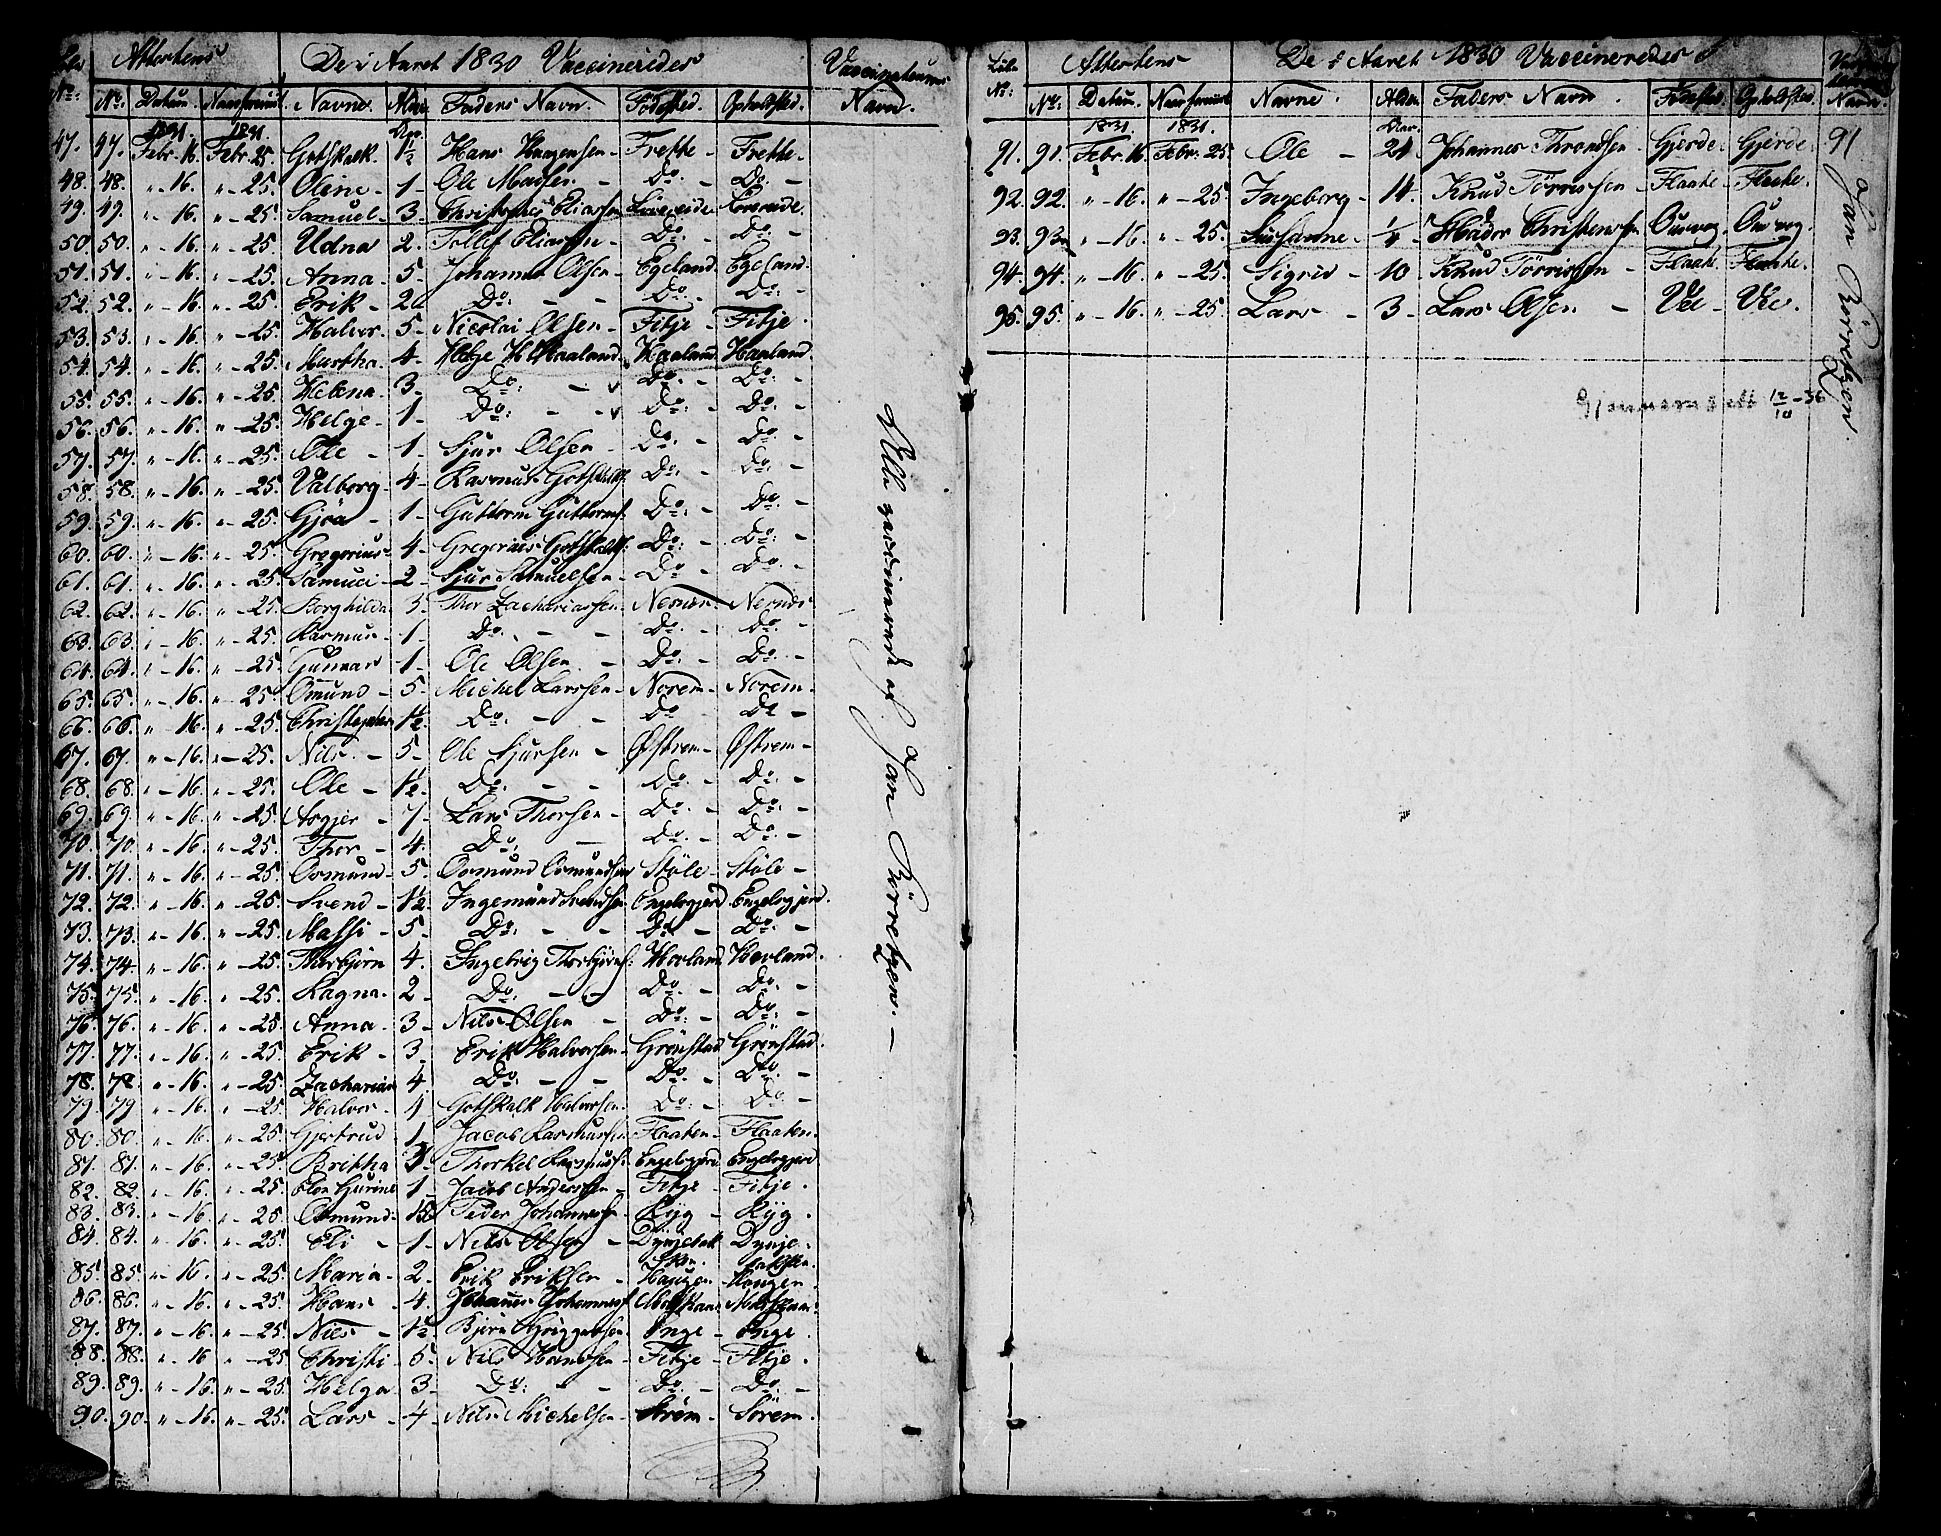 Attestens De i Aaret 1830 Vaccineredes
No: Datum. Navne. Alder Faders Navn. Fødested. Opholdsted. Navn.
1831. 1831. Aar.
47. 47. Febr. 16. Febr. 25. Gotskalk 1½ Hans Haagensen - Frette - Frette -
48. 48. " - 16. " - 25. Oline - 1 - Ole Madsen - Do: - Do: -
49. 49. " - 16. " - 25. Samuel - 3 - Eliassen
50. 50. " - 16. " - 25. Udna 2. Tollef Eliassen - Do: - Do: -
51. 51. " - 16. " - 25. Anna - 5 - Johannes Olsen - Egeland. Egeland.
52. 52. " - 16. " - 25 Erik - 2 Do: - - Do: - Do: -
53. 53. " - 16. " - 25. Halvor - 5 - Nicolai Olsen - Fitje - Fitje.
54. 54. " - 16. " - 25. Martha. 4 - Helje H. Haaland. Haaland Haaland.
55. 55. " - 16. " - 25. Helena. 3 - Do: - Do: - Do: -
56. 56. " - 16. " - 25. Helge - 1 - Do: - Do: - Do: -
57. 57. " - 16. " - 25. Ole - 1 - Sjur Olsen - Do: - Do: -
58. 58. " - 16. " - 25. Valborg - 4 - Rasmus Gotskalks. Do: - Do: -
59. 59. " - 16. " - 25. Gjöa - 1 - Guttorm Guttorms. Do: - Do: -
60. 60. " - 16. " - 25. Gregorius - 4 - Gregorius Gotskalks. Do: - Do: -
61. 61. " - 16. " - 25. Samuel - 2 - Sjur Samuelsen - Do: - Do: -
62. 62. " - 16. " - 25. Borghilda 3. Thor Zachariassen. Nernes. Nernes.
63. 63. " - 16. " - 25. Rasmus - 1 - Do: - - Do: - Do: -
64. 64. " - 16. " - 25. Gunnar - 1 - Ole Olsen - Do: - Do: -
65. 65. " - 16. " - 25. Omund - 5 - Michel Larssen - Norem - Norem -
66. 66. " - 16. " - 25. Christopher 1½. Do: - - Do Do -
67. 67. " - 16. " - 25. Nils - 5 - Ole Sjursen - Østrem - Østrem -
68. 68. " - 16. " - 25. Ole - 1½. Do: - - Do: - Do: -
69. 69. " - 16. " - 25. Asgjer - 7 - Lars Thorsen - Do: - Do: -
70. 70. " - 16. " - 25. Thor - 4. Do: - Do: - Do: -
71. 71. " - 16. " - 25. Osmund - 5. Osmund Osmundsen Støle - Støle -
72. 72. " - 16. " - 25. Svend - 1½. Ingemund Svendsen Engelsgjerd Engelsgjerd.
73. 73. " - 16. " - 25. Massi - 5 - Do: - - Do: - Do: -
74. 74. " - 16. " - 25. Thorbjørn 4. Ingebrig Thorbjörns. Hovland Hovland.
75. 75. " - 16. " - 25. Ragna. 2 - Do: - - Do: - Do: -
76. 76. " - 16. " - 25. Anna - 3 - Nils Olsen - Do: - Do: -
77. 77. " - 16. " - 25. Erik - 3. Erik Halvorsen - Grønstad Grønstad.
78. 78. " - 16. " - 25. Zacharias 4. Do: - - Do: - Do: -
79. 79 " - 16. " - 25. Halvor - 1 Gotskalk Halvorsen. Do: - Do: -
80. 80. " - 16. " - 25. Gjertrud - 1 - Jacob Rasmussen Flaaten - Flaaten.
81. 81. " - 16. " - 25. Britha 3 - Thorkel Rasmuss. Engelsgjerd Engelsgjerd
82. 82. " - 16. " - 25. Gurine 1 - Jacob Anderssen - Fitje - Fitje.
83. 83. " - 16. " - 25. Osmund - Peder Johannessen Ryg - Ryg.
84. 84. " - 16. " - 25. Eli - 1 - Nils Olsen -
85. 85. " - 16. " - 25. Maria - 2 - Erik Eriksen - Haugen - Haugen
86. 86. " - 16. " - 25. Hans - 4. Johannes Johanness.
87. 87. " - 16. " - 25. Nils - 1½ Bjørn Enge - Enge.
88. 88. " - 16 " - 25 Christi - 5. Nils Hansen - Fitje - Fitje.
89. 89. " - 16. " - 25. Helga 3 - Do: - - Do: - Do: -
90. 90. " - 16. " - 25. Lars - 4 - Nils Michelsen - Sörem.
Alle vaccinerede af Jan Sörretzen. -
Attestens De i Aaret 1830 Vaccineredes
No: No: Datum. Navne. Alder Faders Navn. Opholdsted Navn.
1831. 1831. Aar.
91. 91. Febr. 16. Febr. 25. Ole - 24 Johannes Throndsen - Gjerde. Gjerde.
92. 92. " - 16. " - 25. Ingeborg - 14. Knud Törrissen - Flaate - Flaate.
93. 93. " - 16. " - 25. Susanne - ¼ Christensen
94. 94. " - 16. " - 25. Sigrid - 10 Knud Törrissen - Flaate. Flaate.
95. 95. " - 16. " - 25. Lars - 3 - Lars Olsen - Vie - Vie.
91 Jan Sörretzen.
Gjennemsett 12/10 - 36